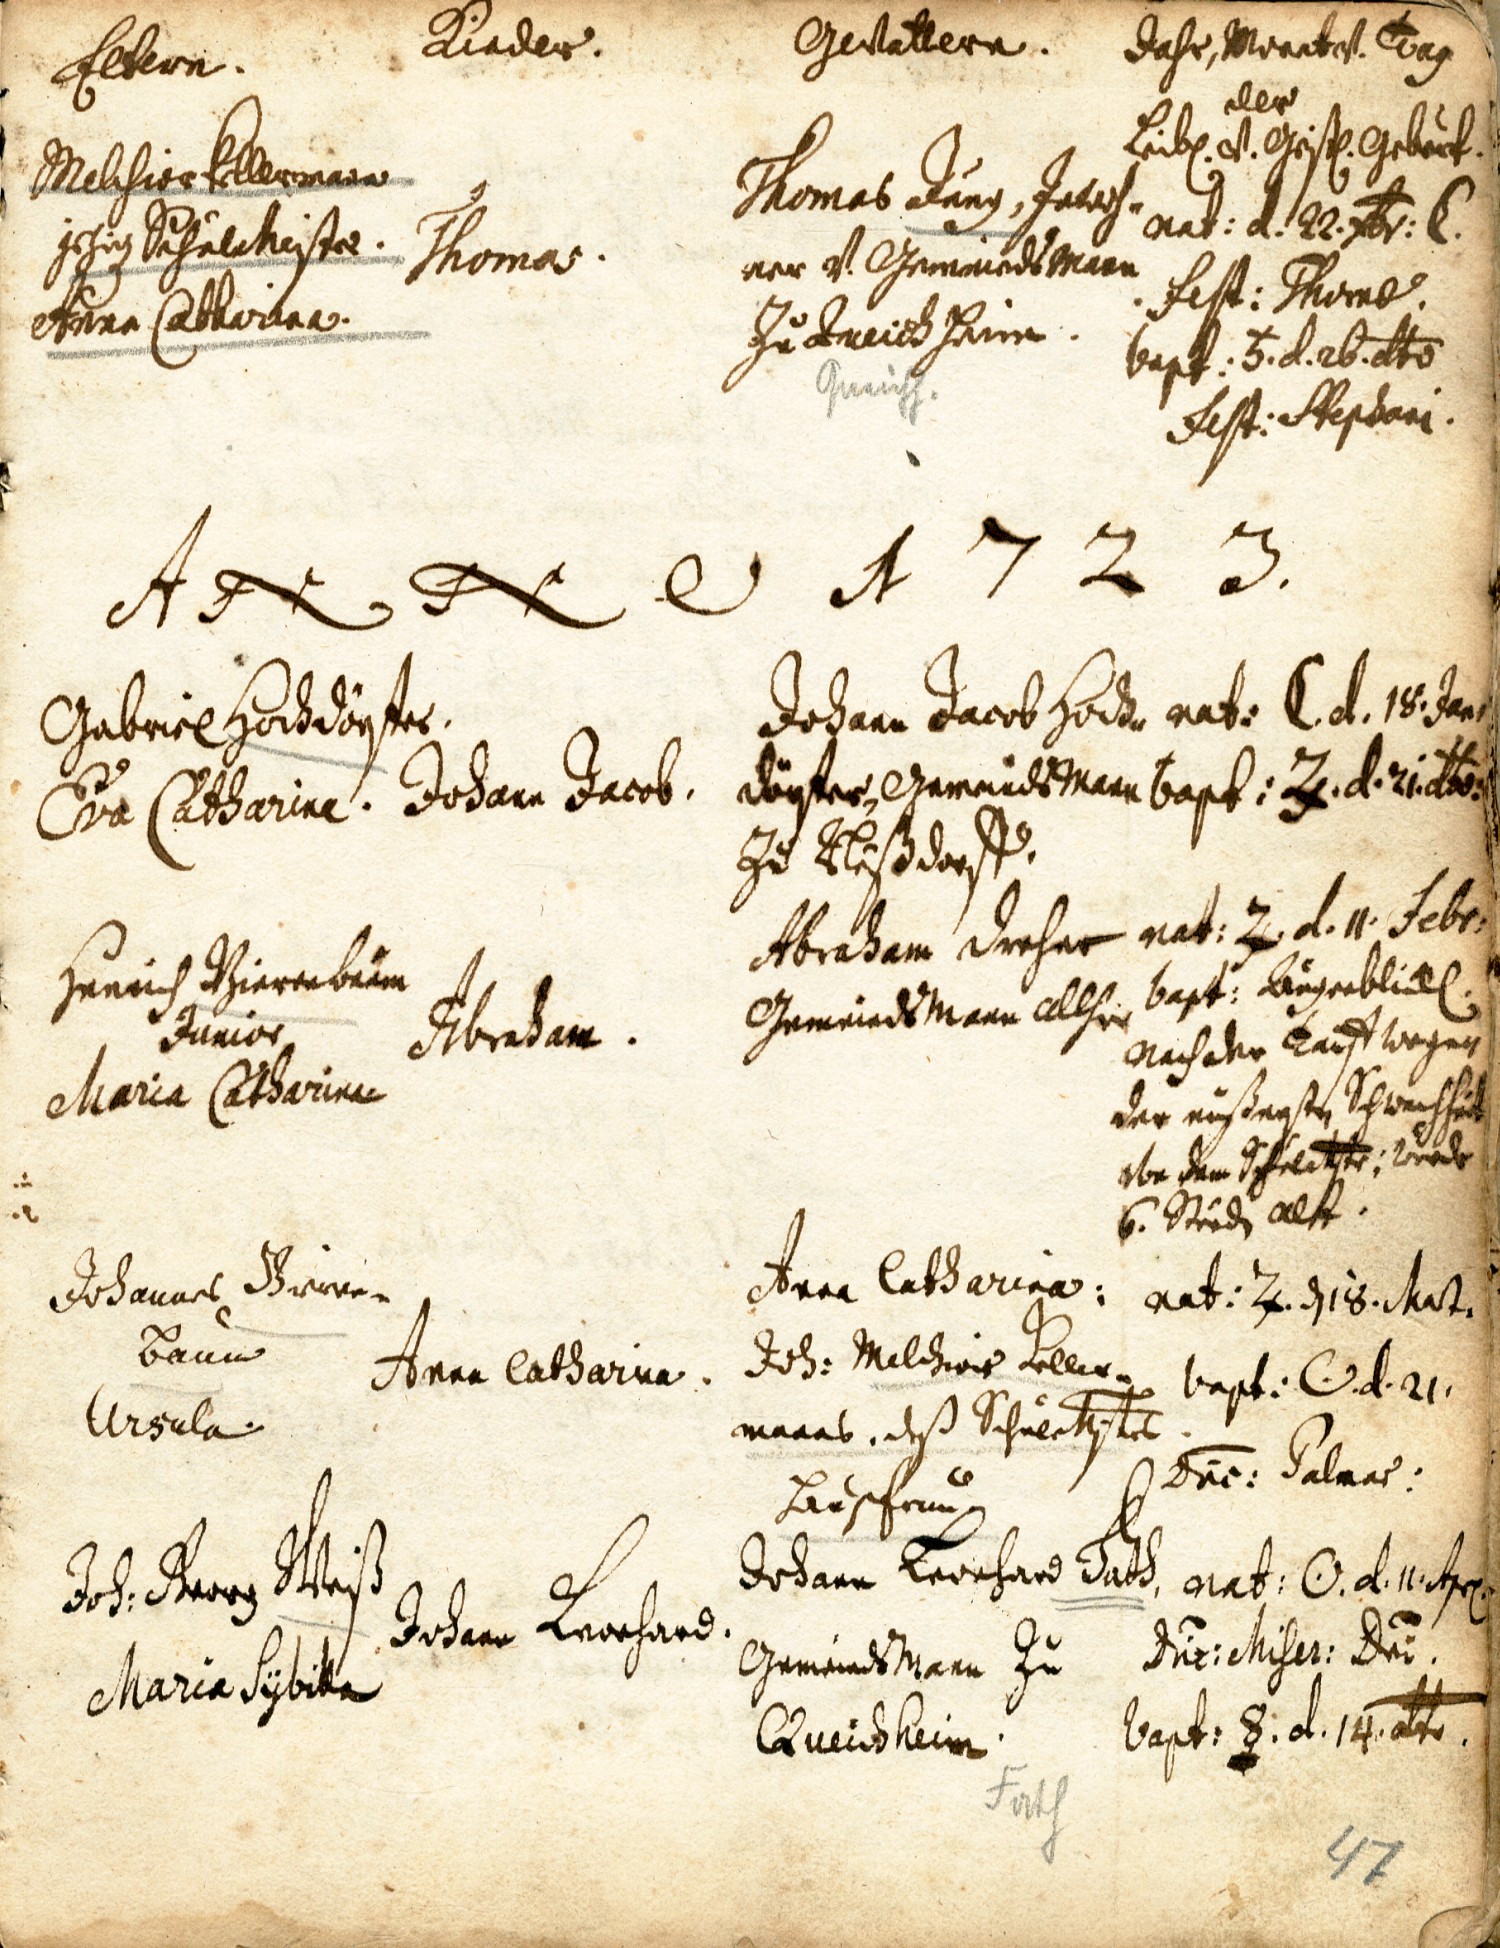 Eltern.
Kinder.
Gevattern.
Jahr, Monat v. Tag
der
Leibl. v. Geistl. Geburt.
Melchior Kellermann
jetzig Schulmeister.
Anna Catharina.
Thomas.
Thomas Jung,
ner v. Gemeinds Mann
Zu Queichheim.
Queichh.
nat: d. 22. Xbr:
Fest: Thomæ.
bapt: d. 26. dto
Fest: Stephani.
ANNO 1723.
Gabriel Hochdörffer.
Eva Catharina.
Johann Jacob.
Johann Jacob Hoch-
dörffer, Gemeinds Mann
Zu Nußdorff.
nat: ☾. d. 18. Jan:
bapt: ♃. d. 21. dto:
Henrich Bierenbaum
Junior
Maria Catharina
Abraham.
Abraham Dreher
Gemeinds Mann allhier
nat: ♃. d. 11. Febr:
bapt: Augenblickl.
nach der Tauff wegen
der eußersten Schwachheit
von dem wurde
6. Stund alt.
Johannes Bieren-
Baum
Ursula.
Anna Catharina.
Anna Catharina:
Joh: Melchior Keller-
manns, deß
Haußfrau
nat: ♃. d. 18. Mart.
bapt: ☉. d. 21.
Dnc: Palmar:
Joh: Georg Weiß
Maria Sybilla
Johann Leonhard.
Johann Leonhard Fath,
Gemeinds Mann Zu
Queichheim.
Fath
nat: ☉. d. 11. Apr.
Dnc: Miser: Dni.
bapt: ☿. d. 14. dto.
47